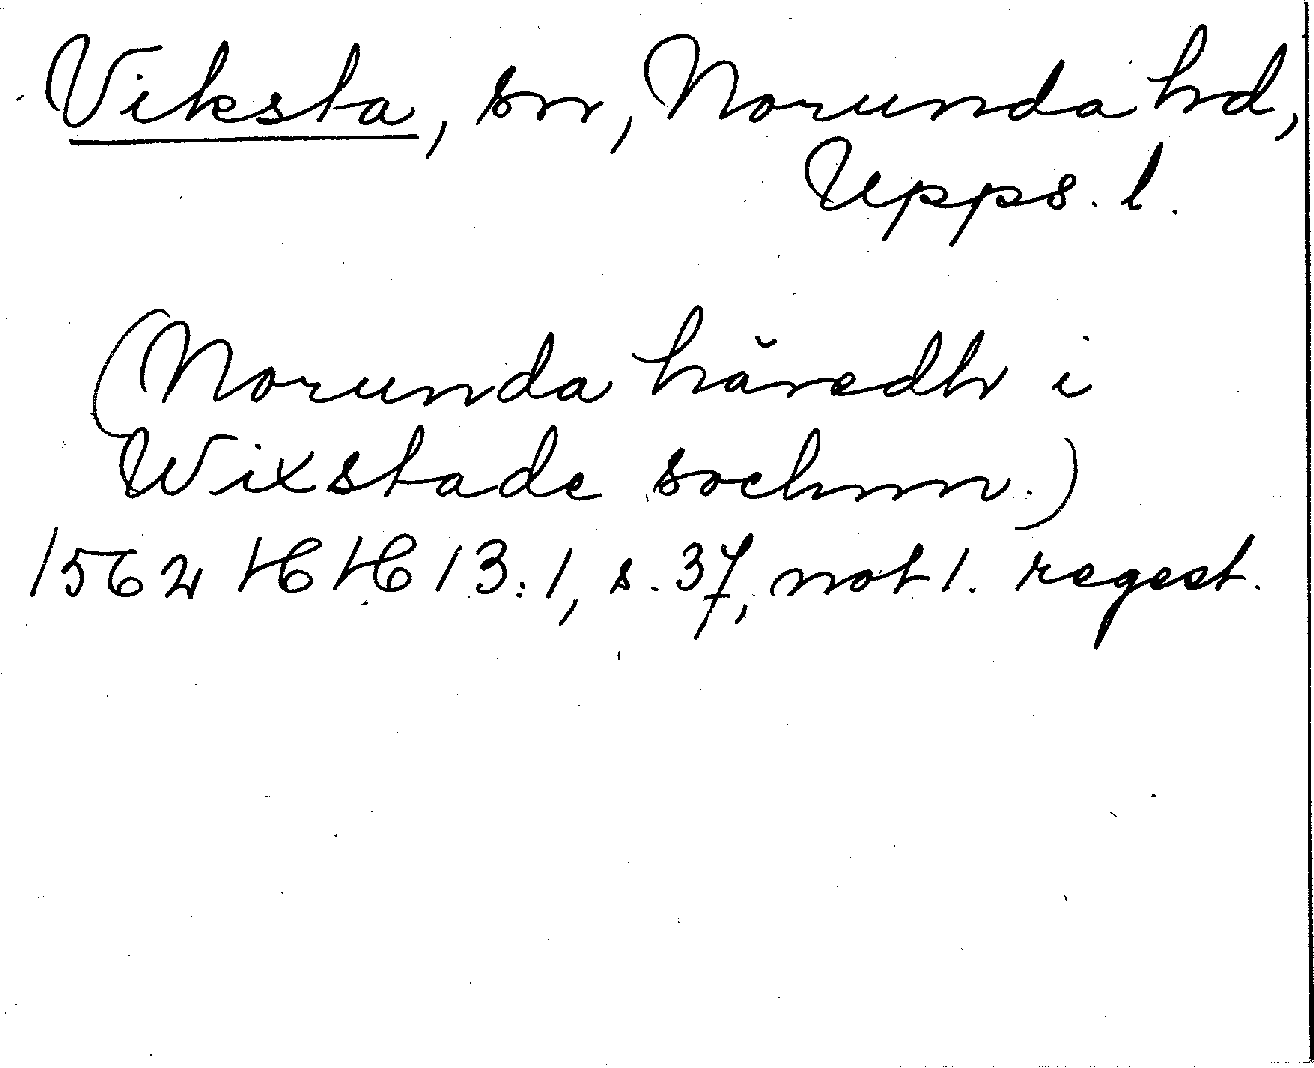 Viksta, sn, Norunda hd,
Upps. l.
(Norunda häredh i
Wixstade sochnn.)
1562 HH 13:1, s. 37, not 1. regest.